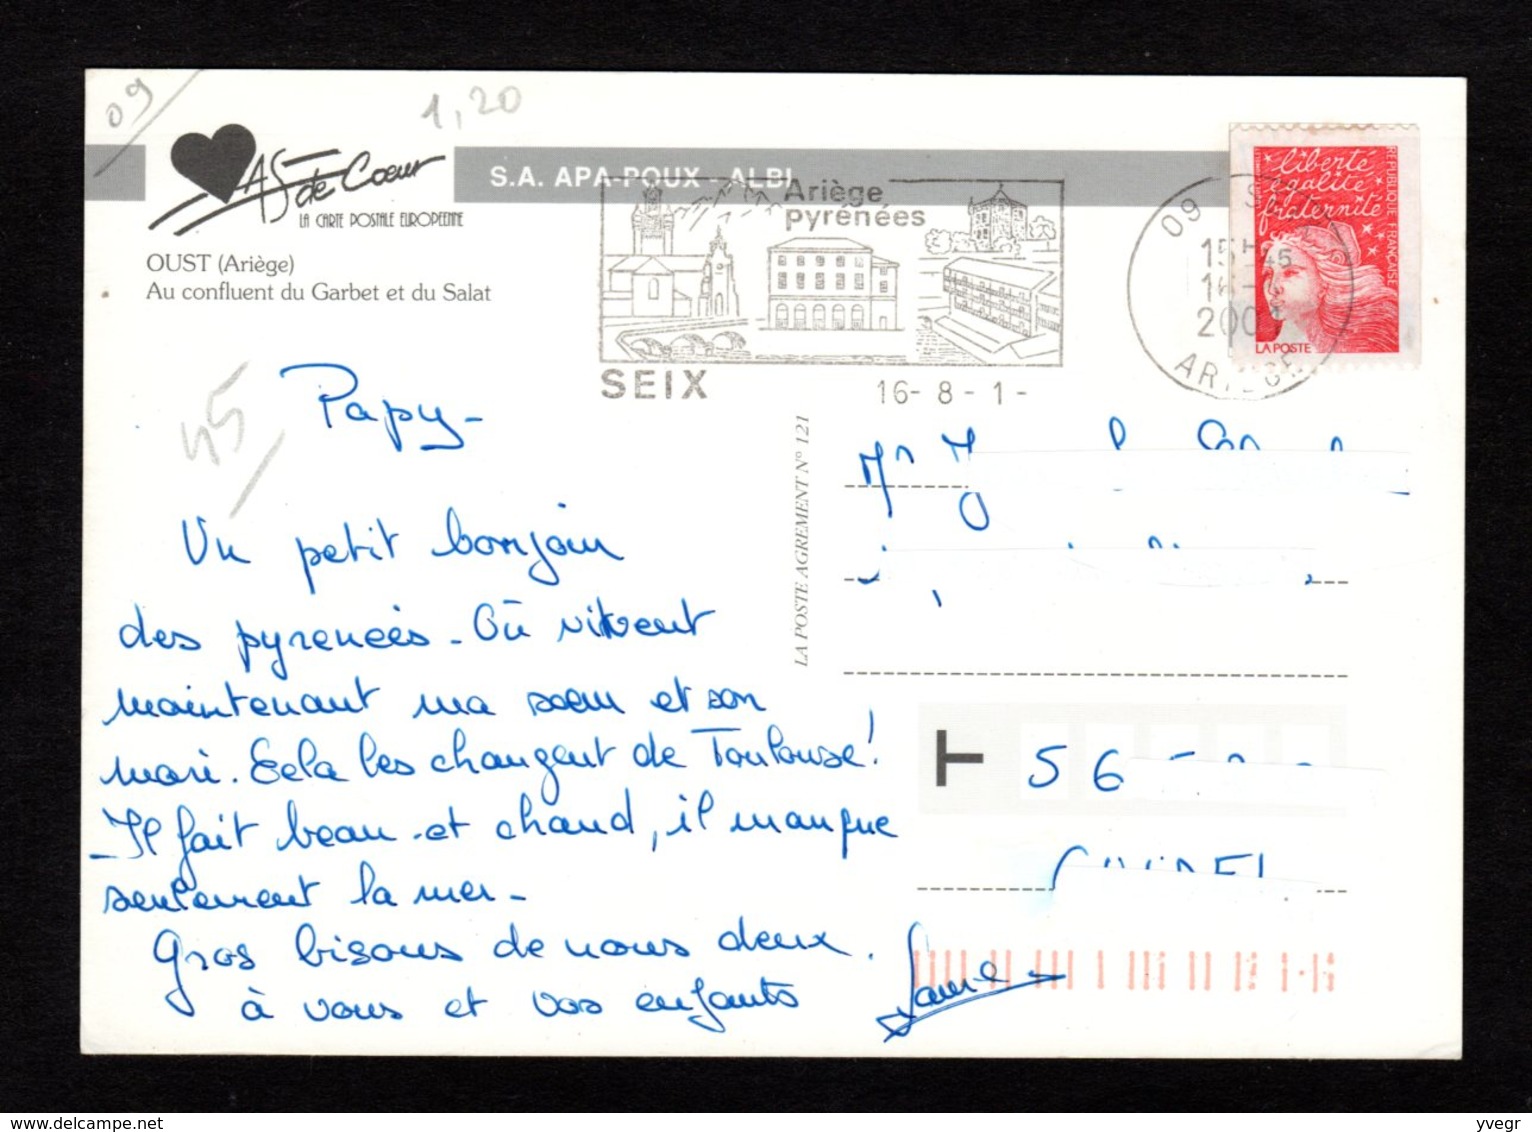 09
1,20
AS de Coeur
LA CARTE POSTALE EUROPEENNE
S.A. APA-POUX - ALBI
OUST (Ariège)
Au confluent du Garbet et du Salat
Ariège
pyrénées
SEIX
16- 8 - 1 -
09
15H45
ARIEGE
liberté
égalité
fraternité
REPUBLIQUE FRANÇAISE
LA POSTE
45
LA POSTE AGREMENT N° 121
Papy-
Un petit bonjour
des pyrenées - Où vivent
maintenant ma soeur et son
mari. Cela les changent de Toulouse!
- Il fait beau et chaud, il manque
seulement la mer -
Gros bisous de nous deux.
à vous et vos enfants
Mr J
56
yvegr